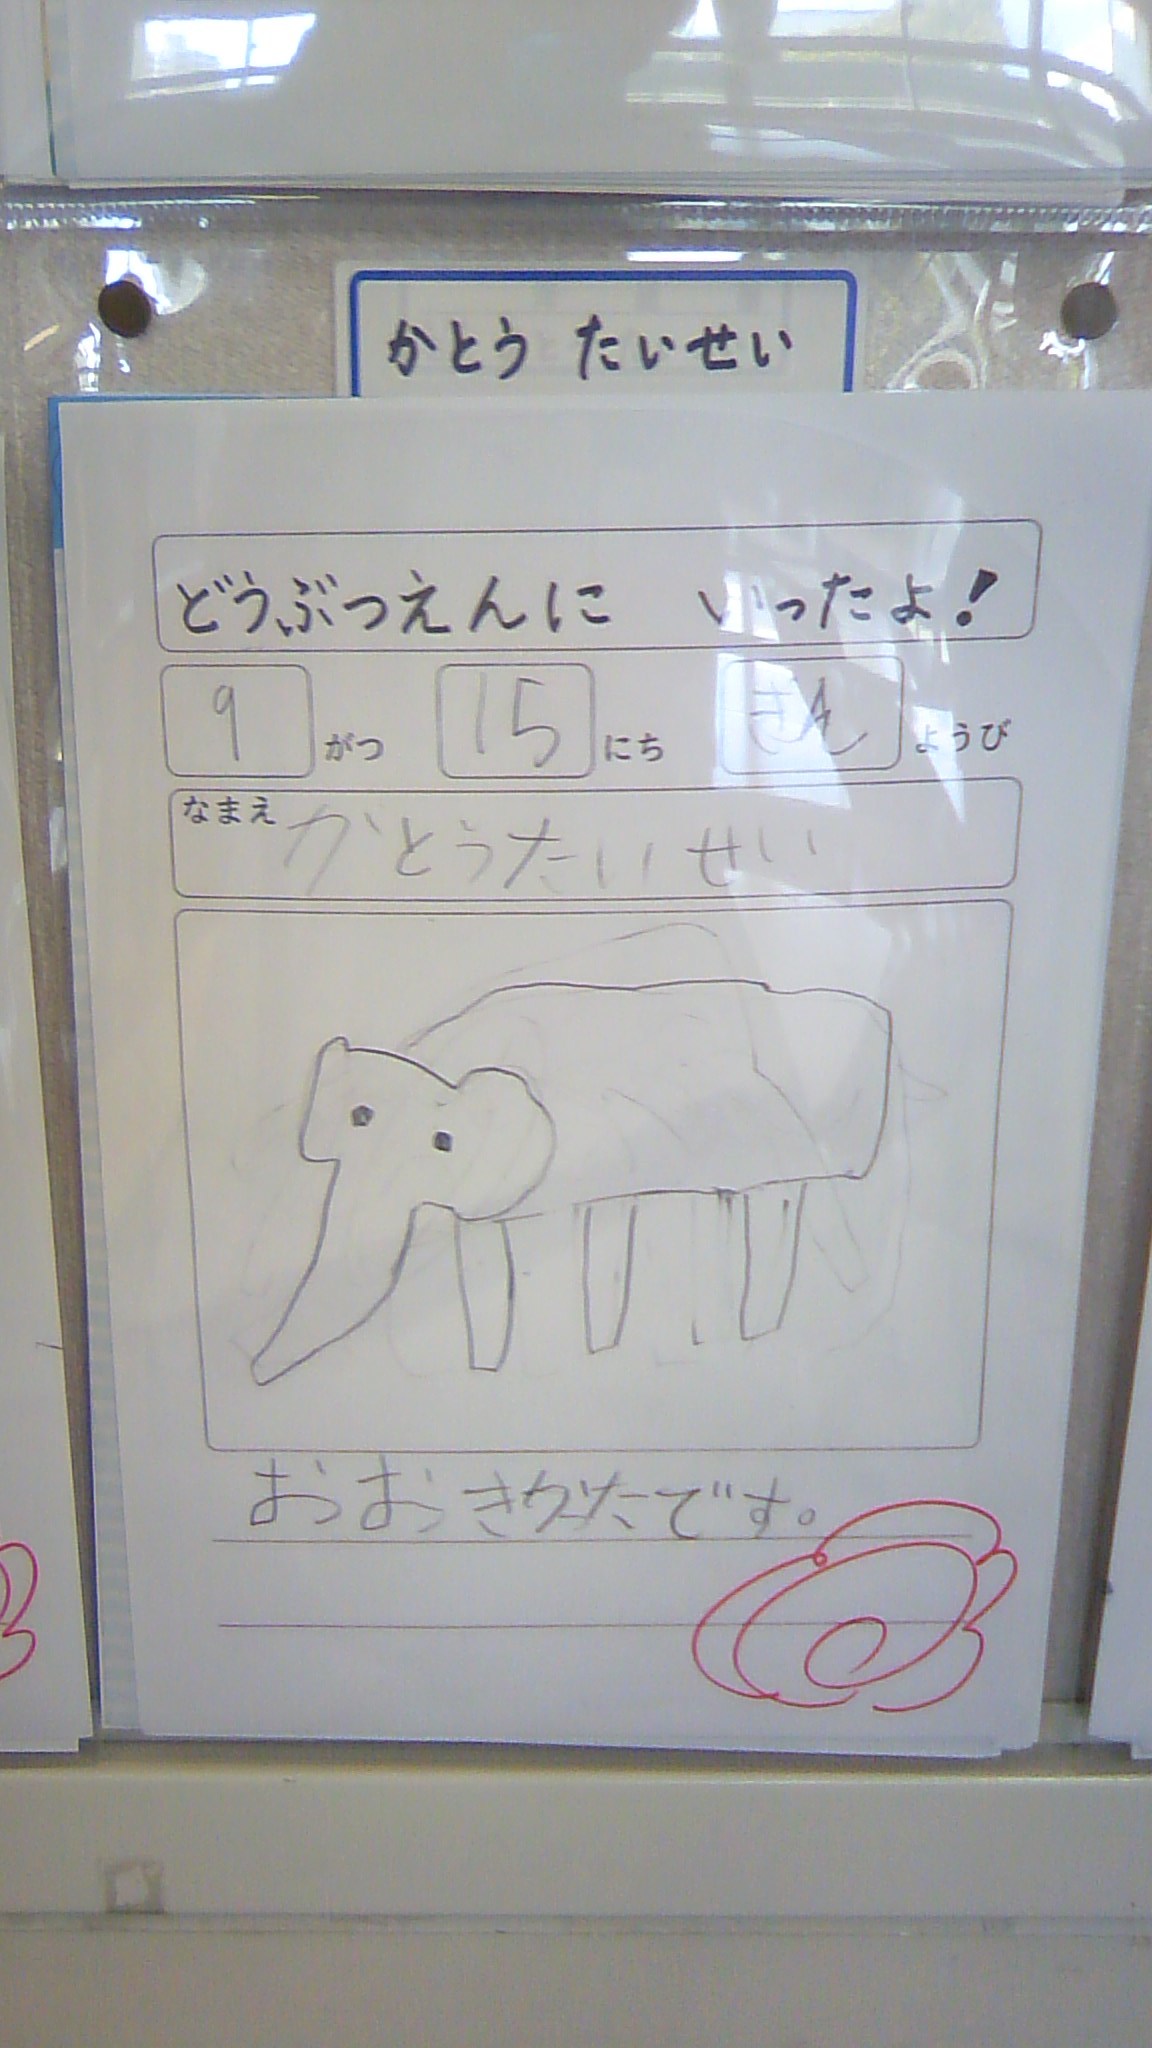 かとう たいせい
どうぶつえんに いったよ!
9 がつ 15 にち きん ようび
なまえ かとうたいせい
おおきかたです。